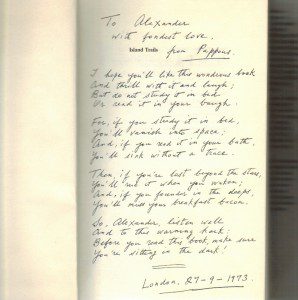 To Alexander
with fondest love,
from Pappous.
Island Trails
I hope you'll like this wondrous book
And thrill with it and laugh;
But do not study it in bed,
Or read it in your bath.
For, if you study it in bed,
You'll vanish into space;
And, if you read it in your bath,
You'll sink without a trace.
Then, if you're lost beyond the stars,
You'll rue it when you waken;
And, if you founder in the deeps,
You'll miss your breakfast bacon.
So, Alexander, listen well
And to this warning hark:
Before you read this book, make sure
You're sitting in the dark.
London, 27-9-1973.